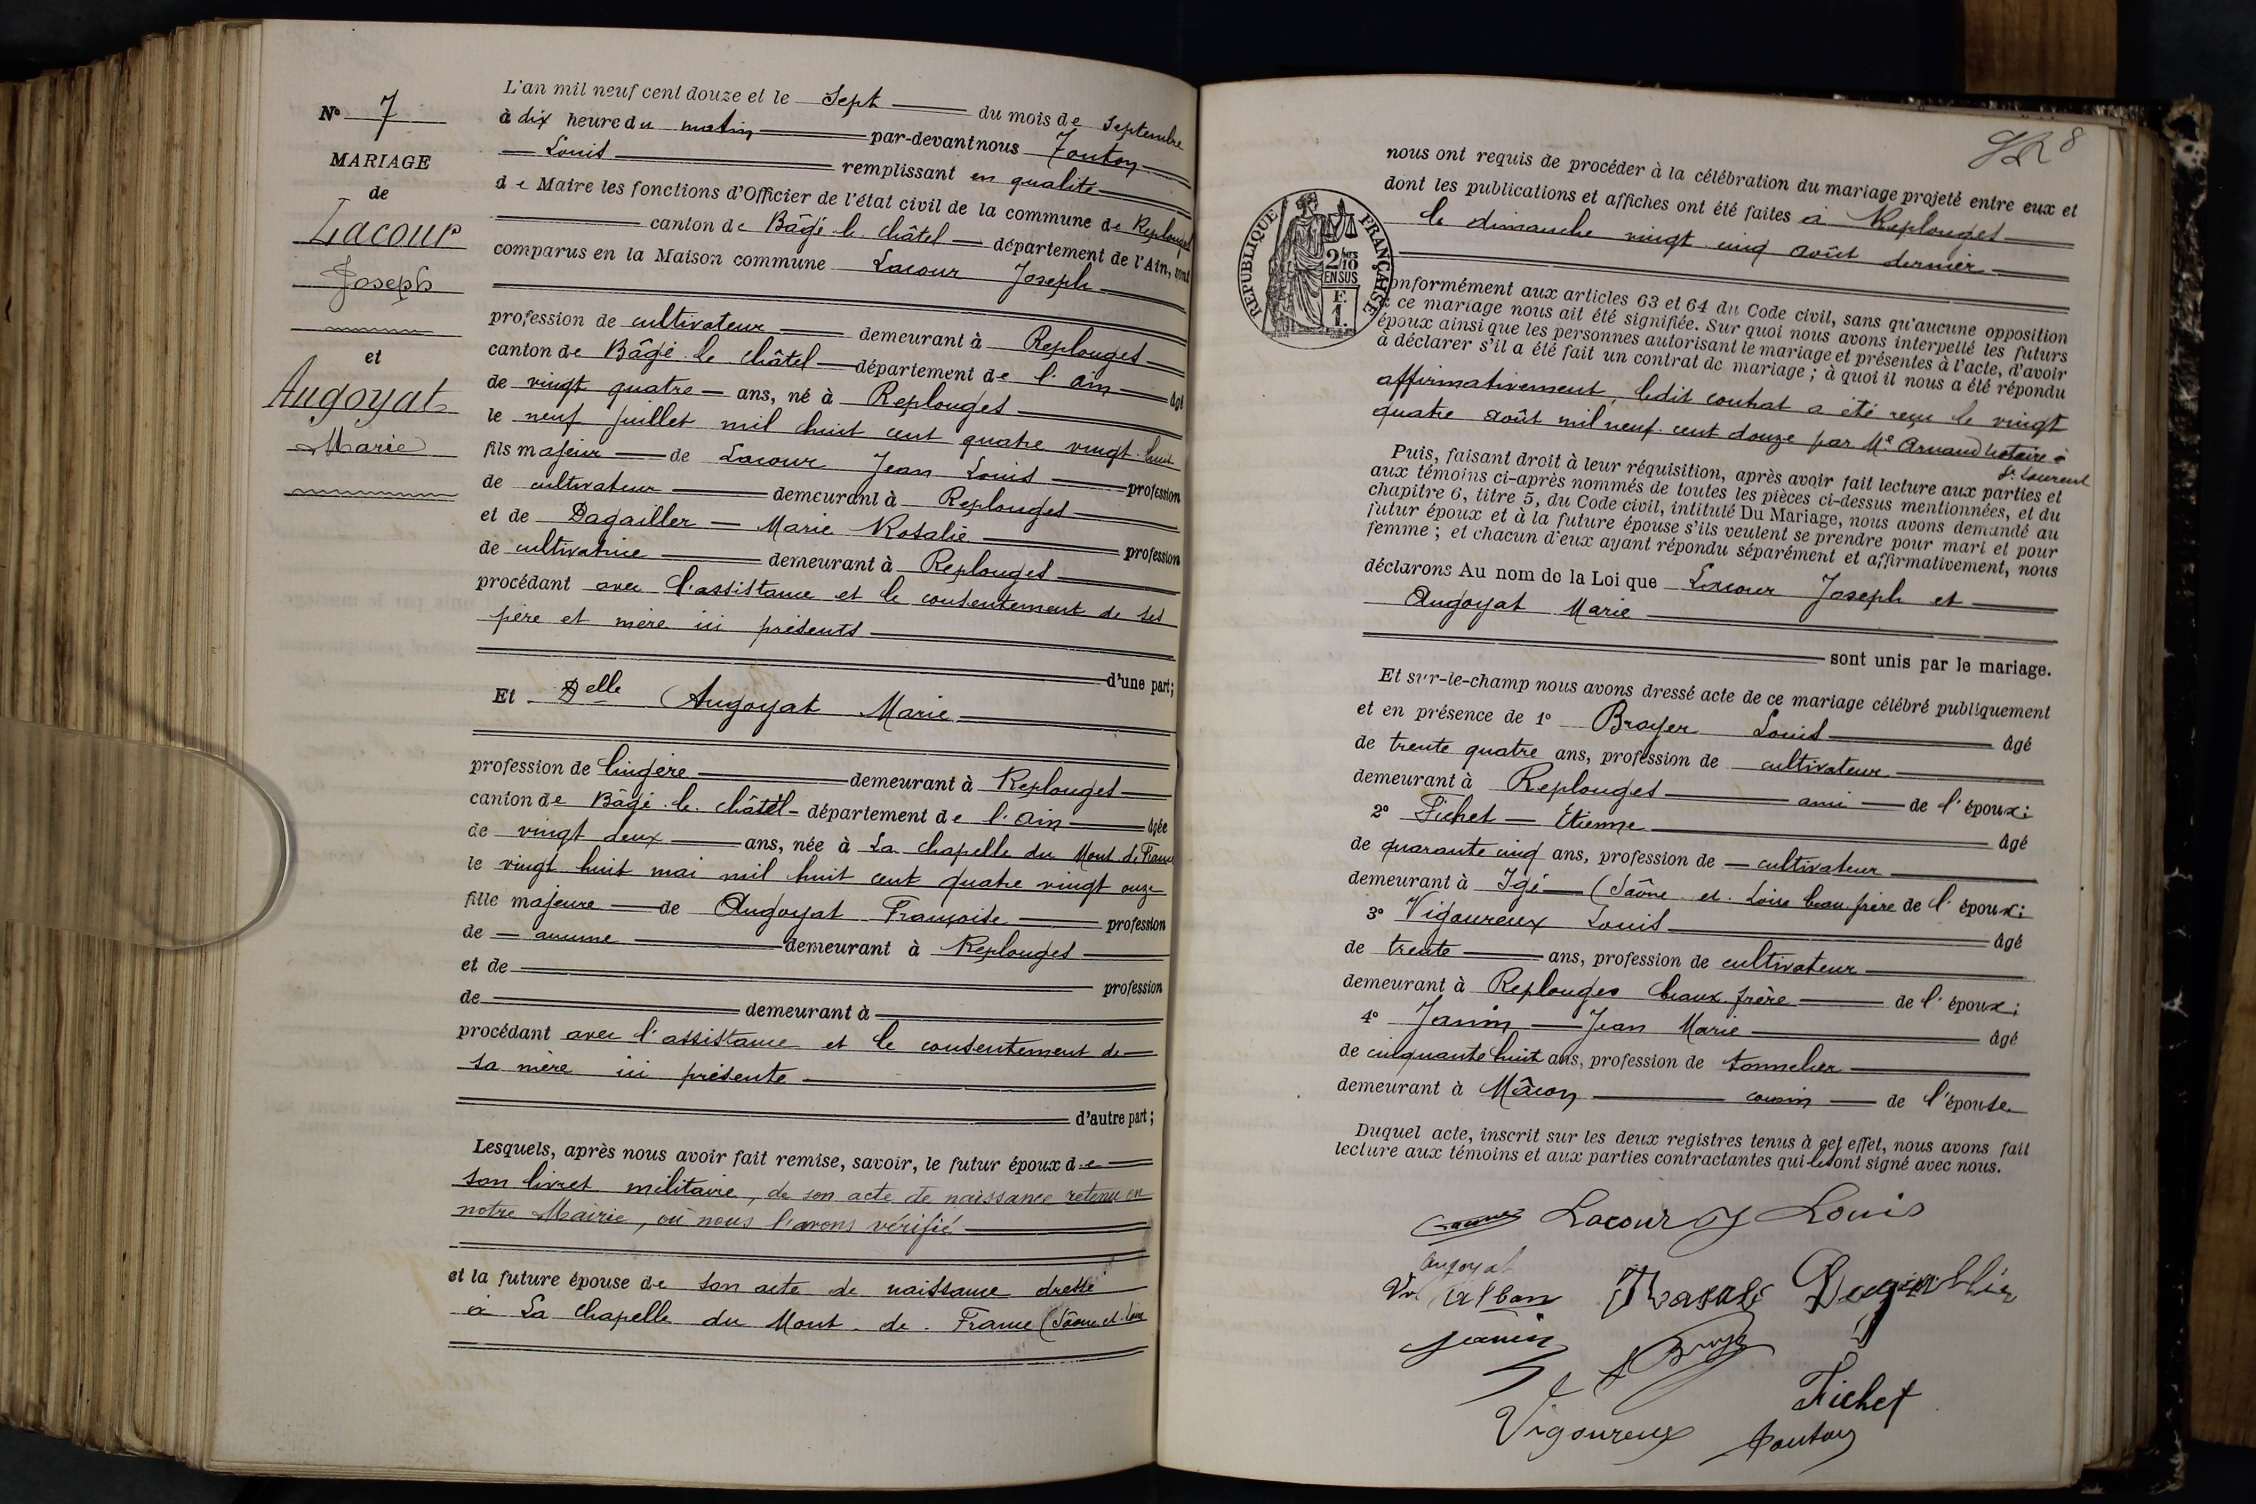 N° 7
MARIAGE
de
Lacour
Joseph
et
Augoyat
Marie
L'an mil neuf cent douze et le Sept du mois de Septembre
à dix heure du matin par-devant nous Fouton
Louis remplissant en qualité
de Maire les fonctions d'Officier de l'état civil de la commune de Replonges
canton de Bâgé le châtel département de l'Ain, sont
comparus en la Maison commune Lacour Joseph
profession de cultivateur demeurant à Replonges
canton de Bâgé le châtel département de l'ain âgé
de vingt quatre ans, né à Replonges
le neuf juillet mil huit cent quatre vingt huit
fils majeur de Lacour Jean Louis profession
de cultivateur demeurant à Replonges
et de Dagailler Marie Rosalie profession
de cultivatrice demeurant à Replonges
procédant avec l'assistance et le consentement de ses
père et mère ici présents
d'une part;
Et Delle Augoyat Marie
profession de lingère demeurant à Replonges
canton de Bâgé le châtel département de l'ain âgée
de vingt deux ans, née à La chapelle du Mont de France
le vingt huit mai mil huit cent quatre vingt onze
fille majeure de Augoyat Françoise profession
de aucune demeurant à Replonges
et de profession
de demeurant à
procédant avec l'assistance et le consentement de
sa mère ici présente
d'autre part;
Lesquels, après nous avoir fait remise, savoir, le futur époux de
son livret militaire, de son acte de naissance retenu en
notre Mairie, où nous l'avons vérifié
et la future épouse de son acte de naissance dressé
à La Chapelle du Mont de France (Saône et Loire
8
nous ont requis de procéder à la célébration du mariage projeté entre eux et
dont les publications et affiches ont été faites à Replonges
le dimanche vingt cinq août dernier
RÉPUBLIQUE FRANÇAISE
2/10
EN SUS
F.
1.
conformément aux articles 63 et 64 du Code civil, sans qu'aucune opposition
à ce mariage nous ait été signifiée. Sur quoi nous avons interpellé les futurs
époux ainsi que les personnes autorisant le mariage et présentes à l'acte, d'avoir
à déclarer s'il a été fait un contrat de mariage; à quoi il nous a été répondu
affirmativement, ledit contrat a été reçu le vingt
quatre août mil neuf cent douze par Me Arnaud notaire à
St Laurent
Puis, faisant droit à leur réquisition, après avoir fait lecture aux parties et
aux témoins ci-après nommés de toutes les pièces ci-dessus mentionnées, et du
chapitre 6, titre 5, du Code civil, intitulé Du Mariage, nous avons demandé au
futur époux et à la future épouse s'ils veulent se prendre pour mari et pour
femme; et chacun d'eux ayant répondu séparément et affirmativement, nous
déclarons Au nom de la Loi que Lacour Joseph et
Augoyat Marie
sont unis par le mariage.
Et sur-le-champ nous avons dressé acte de ce mariage célébré publiquement
et en présence de 1° Broyer Louis âgé
de trente quatre ans, profession de cultivateur
demeurant à Replonges ami de l'époux;
2° Fichet Etienne âgé
de quarante cinq ans, profession de cultivateur
demeurant à Igé (Saône et Loire beau frère de l'époux;
3° Vigoureux Louis âgé
de trente ans, profession de cultivateur
demeurant à Replonges beaux frère de l'époux;
4° Janin Jean Marie âgé
de cinquante huit ans, profession de tonnelier
demeurant à Mâcon cousin de l'épouse
Duquel acte, inscrit sur les deux registres tenus à cet effet, nous avons fait
lecture aux témoins et aux parties contractantes qui le ont signé avec nous.
Lacour Louis
Augoyat
Janin
Fichet
Vigoureux Fouton